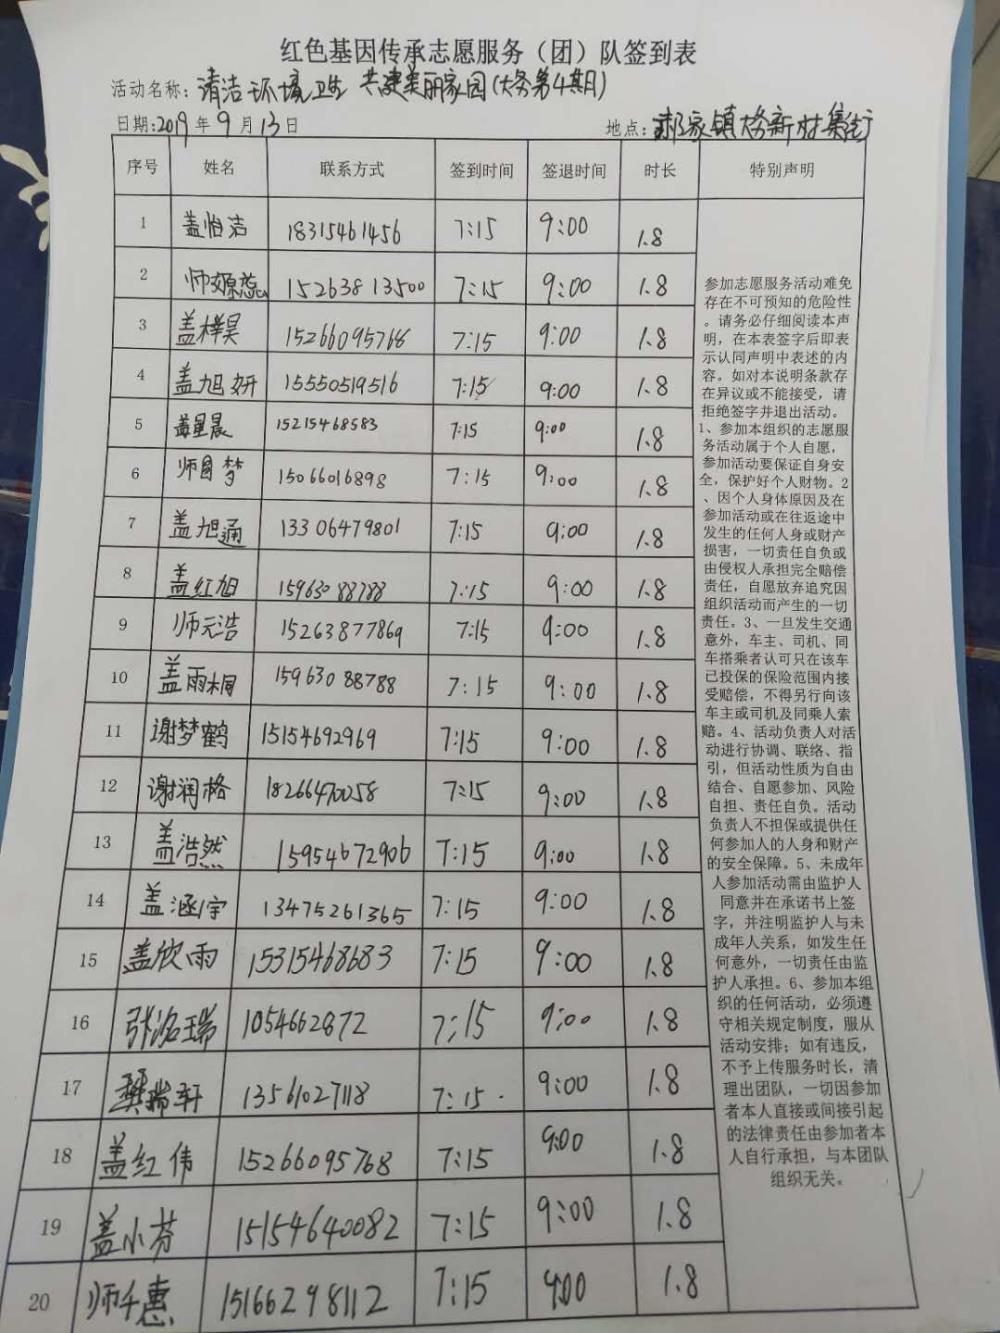 红色基因传承志愿服务（团）队签到表
活动名称：清洁环境卫生 共建美丽家园(大务第4期)
日期:2019年9月13日 地点: 郝家镇大务新村集街
序号 姓名 联系方式 签到时间 签退时间 时长 特别声明
1 盖怡洁 18315461456 7:15 9:00 1.8
2 师嫄蕊 15263813500 7:15 9:00 1.8
3 盖梓昊 15266095768 7:15 9:00 1.8
4 盖旭妍 15550519516 7:15 9:00 1.8
5 盖星晨 15215468583 7:15 9:00 1.8
6 师圆梦 15066016898 7:15 9:00 1.8
7 盖旭通 13306479801 7:15 9:00 1.8
8 盖红旭 15963088788 7:15 9:00 1.8
9 师元浩 15263877869 7:15 9:00 1.8
10 盖雨桐 15963088788 7:15 9:00 1.8
11 谢梦鹤 15154692969 7:15 9:00 1.8
12 谢润格 18266470058 7:15 9:00 1.8
13 盖浩然 15954672906 7:15 9:00 1.8
14 盖涵宇 13475261365 7:15 9:00 1.8
15 盖欣雨 15315468683 7:15 9:00 1.8
16 张洺瑞 1054662872 7:15 9:00 1.8
17 樊瑞轩 13561027118 7:15 9:00 1.8
18 盖红伟 15266095768 7:15 9:00 1.8
19 盖小芬 15154640082 7:15 9:00 1.8
20 师千惠 15166298112 7:15 9:00 1.8
参加志愿服务活动难免
存在不可预知的危险性
。请务必仔细阅读本声
明，在本表签字后即表
示认同声明中表述的内
容。如对本说明条款存
在异议或不能接受，请
拒绝签字并退出活动。
1、参加本组织的志愿服
务活动属于个人自愿，
参加活动要保证自身安
全，保护好个人财物。2
、因个人身体原因及在
参加活动或在往返途中
发生的任何人身或财产
损害，一切责任自负或
由侵权人承担完全赔偿
责任，自愿放弃追究因
组织活动而产生的一切
责任。3、一旦发生交通
意外，车主、司机、同
车搭乘者认可只在该车
已投保的保险范围内接
受赔偿，不得另行向该
车主或司机及同乘人索
赔。4、活动负责人对活
动进行协调、联络、指
引，但活动性质为自由
结合、自愿参加、风险
自担、责任自负。活动
负责人不担保或提供任
何参加人的人身和财产
的安全保障。5、未成年
人参加活动需由监护人
同意并在承诺书上签
字，并注明监护人与未
成年人关系，如发生任
何意外，一切责任由监
护人承担。6、参加本组
织的任何活动，必须遵
守相关规定制度，服从
活动安排；如有违反，
不予上传服务时长，清
理出团队，一切因参加
者本人直接或间接引起
的法律责任由参加者本
人自行承担，与本团队
组织无关。